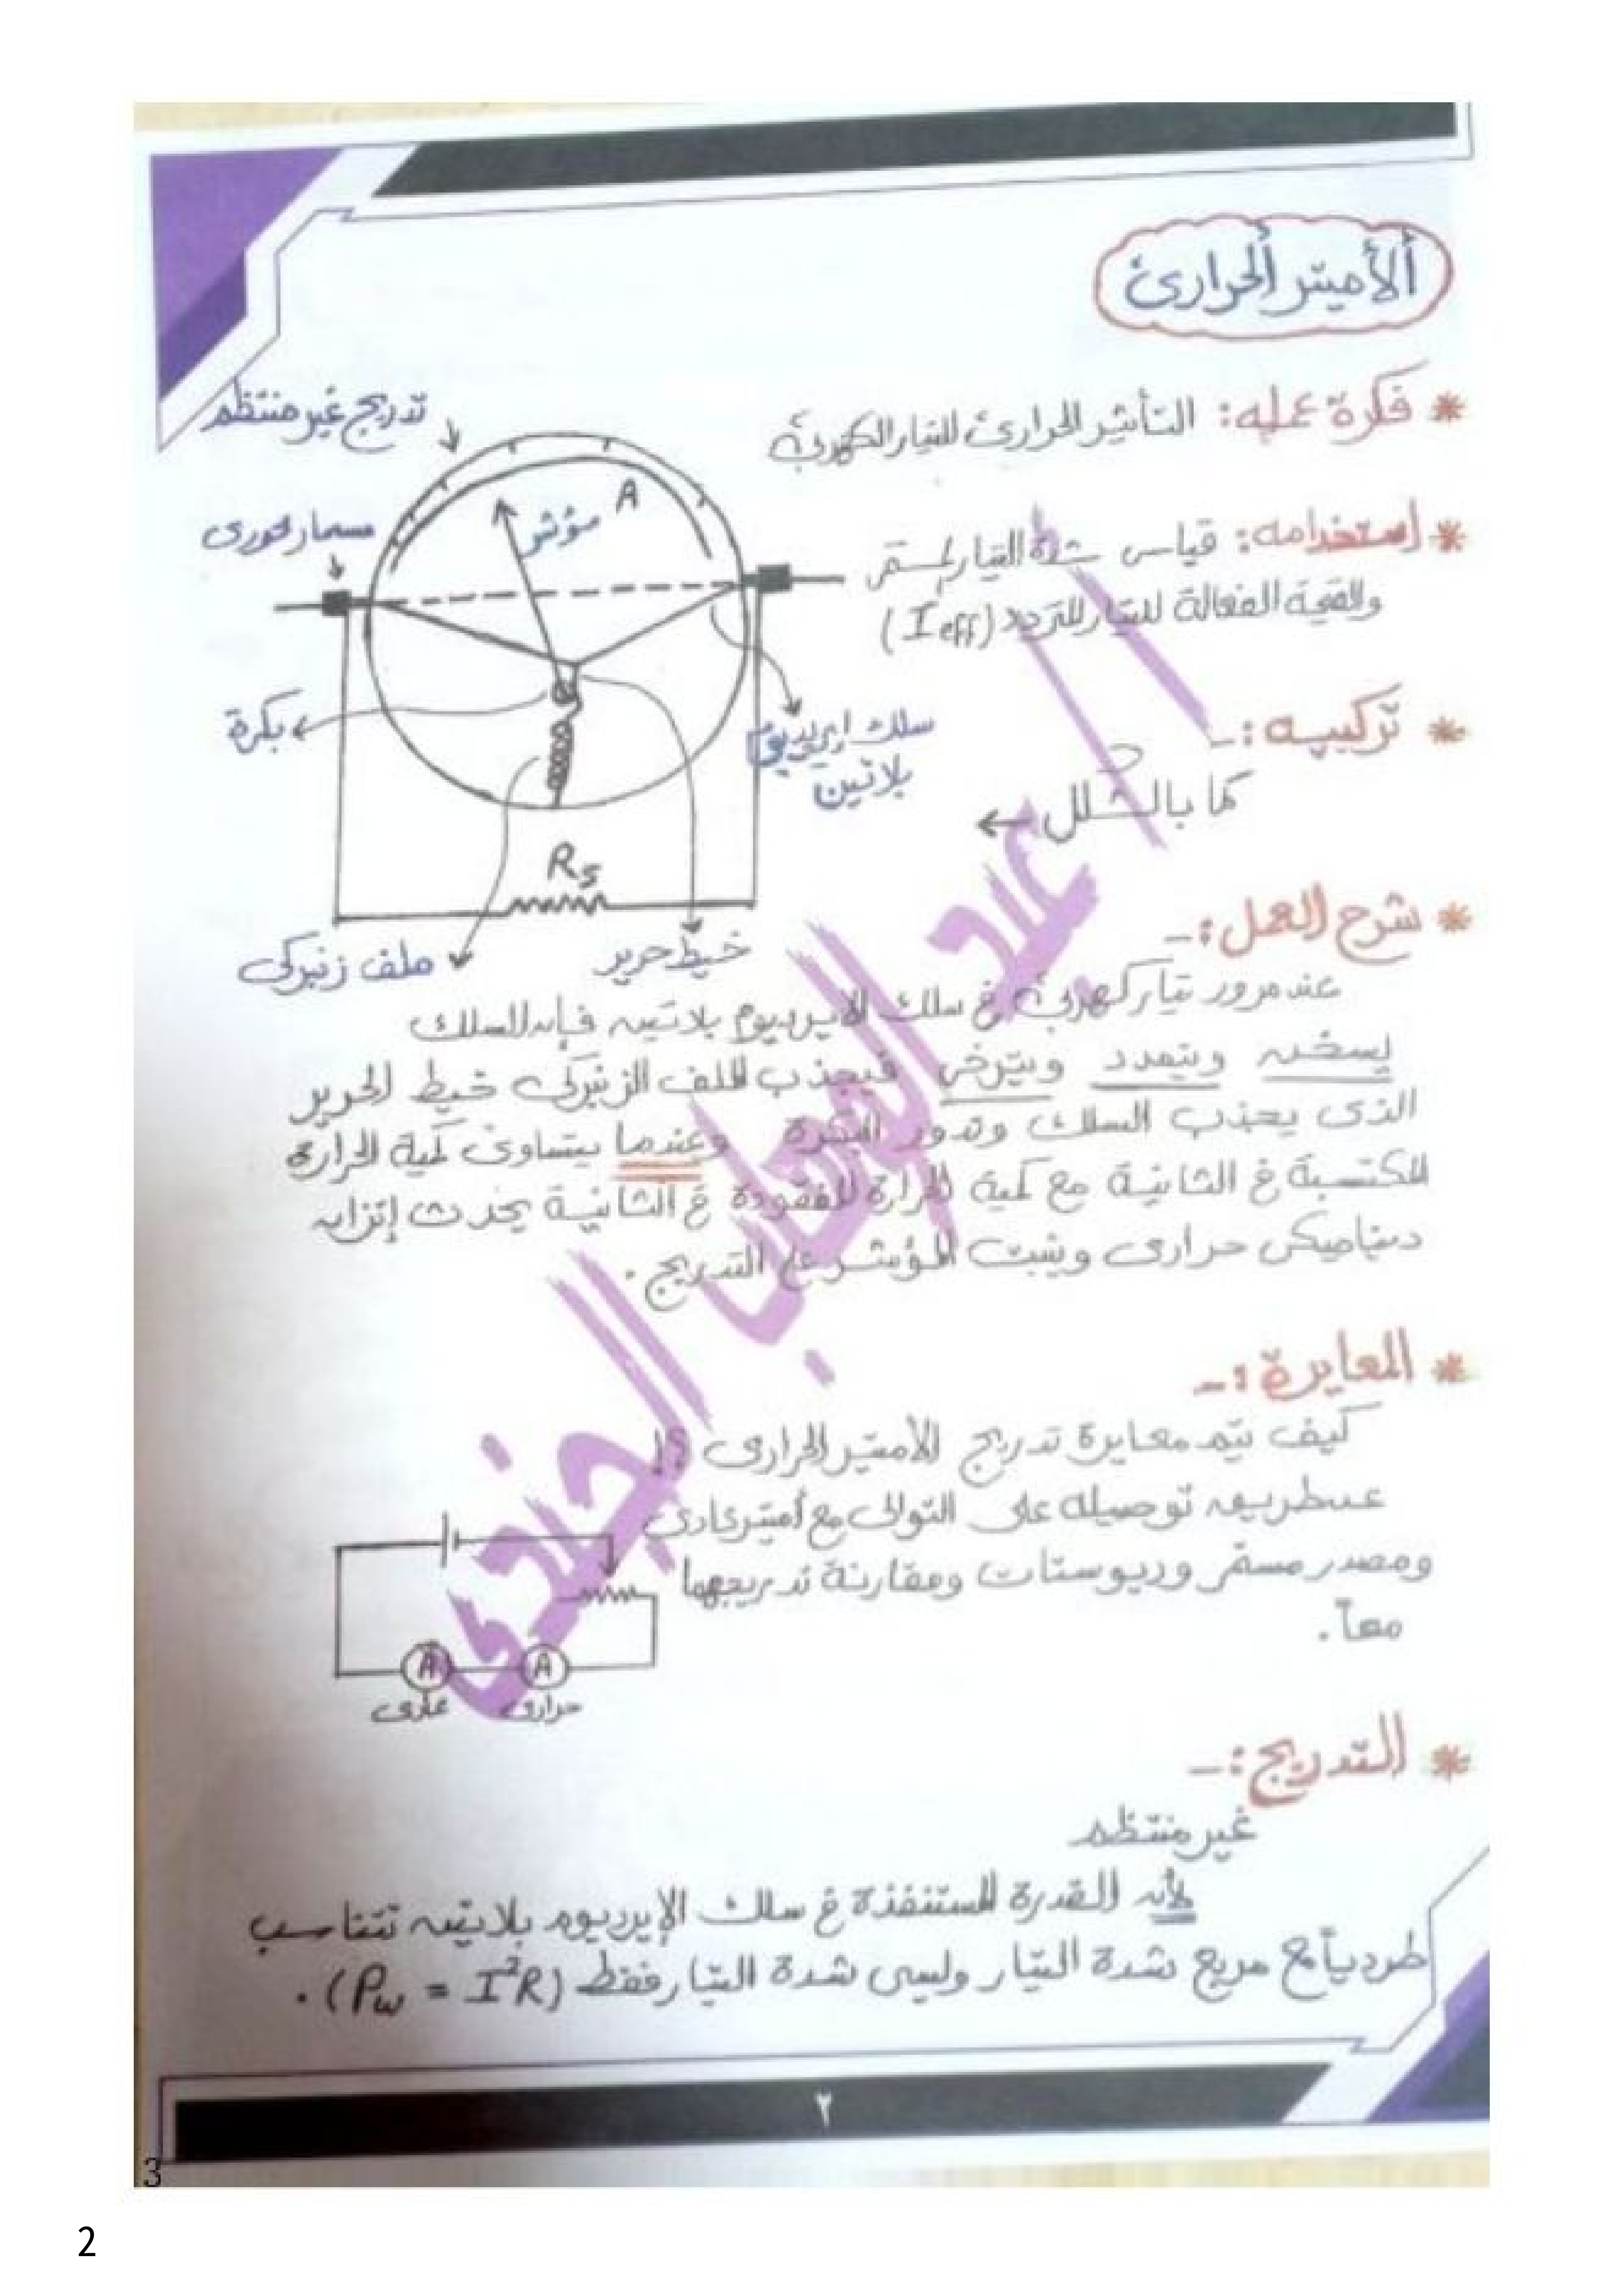 الأميتر الحرارى
* فكرة عمله: التأثير الحرارى للتيار الكهربى
* إستخدامه: قياس شدة التيار المستمر
والقيمة الفعالة للتيار المتردد (Ieff)
* تركيبه :-
كما بالشكل ←
تدريج غير منتظم
مسمار محورى
A
مؤشر
بكرة
سلك ايريديوم
بلاتين
Rs
ملف زنبركى
خيط حرير
* شرح العمل :-
عند مرور تيار كهربى فى سلك الايريديوم بلاتين فإن السلك
يسخن ويتمدد ويرتخى فيجذب الملف الزنبركى خيط الحرير
الذى يجذب السلك وتدور البكرة وعندما يتساوى كمية الحرارة
المكتسبة فى الثانية مع كمية الحرارة المفقودة فى الثانية يحدث إتزان
ديناميكى حرارى ويثبت المؤشر على التدريج .
* المعايرة :-
كيف يتم معايرة تدريج الأميتر الحرارى ؟!
عن طريق توصيله على التوالى مع أميتر عادى
ومصدر مستمر وريوستات ومقارنة تدريجهما
معاً .
A A
عادى حرارى
* التدريج :-
غير منتظم
لأن القدرة المستنفذة فى سلك الإيريديوم بلاتين تتناسب
طردياً مع مربع شدة التيار وليس شدة التيار فقط (Pw = I²R) .
أ / عبد الوهاب الجندى
٢
3
2